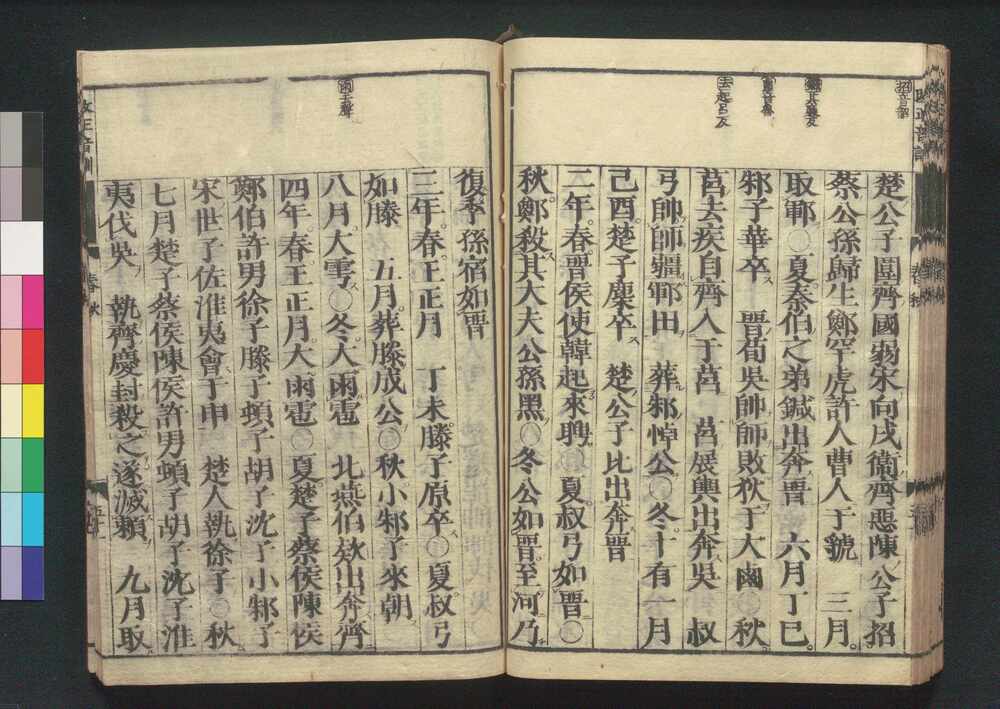 楚公子圍齊國弱宋向戌衞齊惡陳公子招
蔡公孫歸生鄭罕虎許人曹人于虢　三月
取鄆○夏秦伯之弟鍼出奔晋　六月丁巳
邾子華卒　晋荀吳帥師敗狄于大鹵○秋
莒去疾自齊入于莒　莒展輿出奔吳　叔
弓帥師疆鄆田　葬邾悼公○冬十有一月
己酉楚子麇卒　楚公子比出奔晋
二年春晋侯使韓起來聘　夏叔弓如晋○
秋鄭殺其大夫公孫黑○冬公如晋至河乃
復季孫宿如晋
三年春王正月　丁未滕子原卒○夏叔弓
如滕　五月葬滕成公○秋小邾子來朝
八月大雩○冬大雨雹　北燕伯欵出奔齊
四年春王正月大雨雹○夏楚子蔡侯陳侯
鄭伯許男徐子滕子頓子胡子沈子小邾子
宋世子佐淮夷會于申　楚人執徐子○秋
七月楚子蔡侯陳侯許男頓子胡子沈子淮
夷伐吳　執齊慶封殺之遂滅賴　九月取
改正音訓
春秋